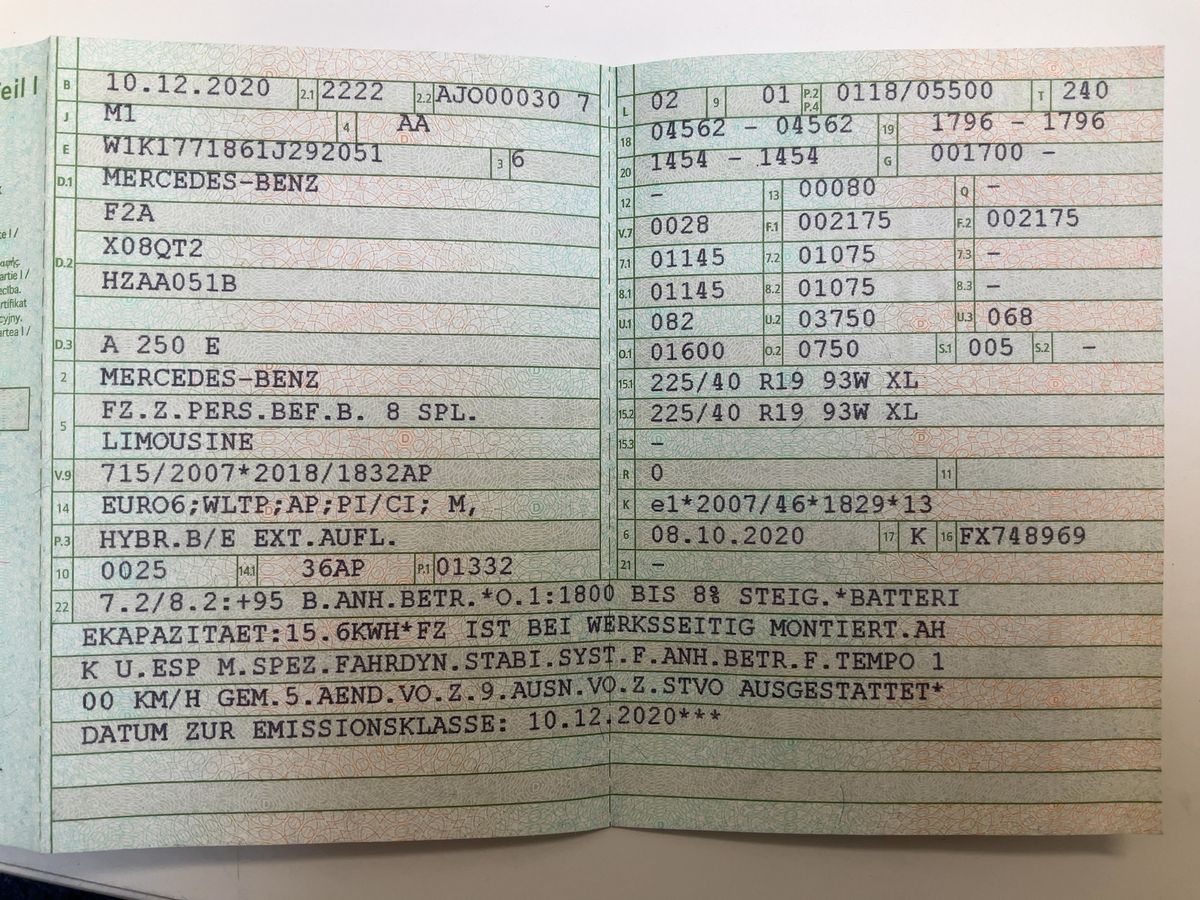 eil I
B 10.12.2020 2.1 2222 2.2 AJO00030 7
J M1 4 AA
E W1K1771861J292051 3 6
D.1 MERCEDES-BENZ
F2A
D.2 X08QT2
HZAA051B
D.3 A 250 E
2 MERCEDES-BENZ
5 FZ.Z.PERS.BEF.B. 8 SPL.
LIMOUSINE
V.9 715/2007*2018/1832AP
14 EURO6;WLTP;AP;PI/CI; M,
P.3 HYBR.B/E EXT.AUFL.
10 0025 14.1 36AP P.1 01332
L 02 9 01 P.2 P.4 0118/05500 T 240
18 04562 - 04562 19 1796 - 1796
20 1454 - 1454 G 001700 -
12 - 13 00080 Q -
V.7 0028 F.1 002175 F.2 002175
7.1 01145 7.2 01075 7.3 -
8.1 01145 8.2 01075 8.3 -
U.1 082 U.2 03750 U.3 068
O.1 01600 O.2 0750 S.1 005 S.2 -
15.1 225/40 R19 93W XL
15.2 225/40 R19 93W XL
15.3 -
R 0 11
K e1*2007/46*1829*13
6 08.10.2020 17 K 16 FX748969
21 -
22 7.2/8.2:+95 B.ANH.BETR.*O.1:1800 BIS 8% STEIG.*BATTERI
EKAPAZITAET:15.6KWH*FZ IST BEI WERKSSEITIG MONTIERT.AH
K U.ESP M.SPEZ.FAHRDYN.STABI.SYST.F.ANH.BETR.F.TEMPO 1
00 KM/H GEM.5.AEND.VO.Z.9.AUSN.VO.Z.STVO AUSGESTATTET*
DATUM ZUR EMISSIONSKLASSE: 10.12.2020***